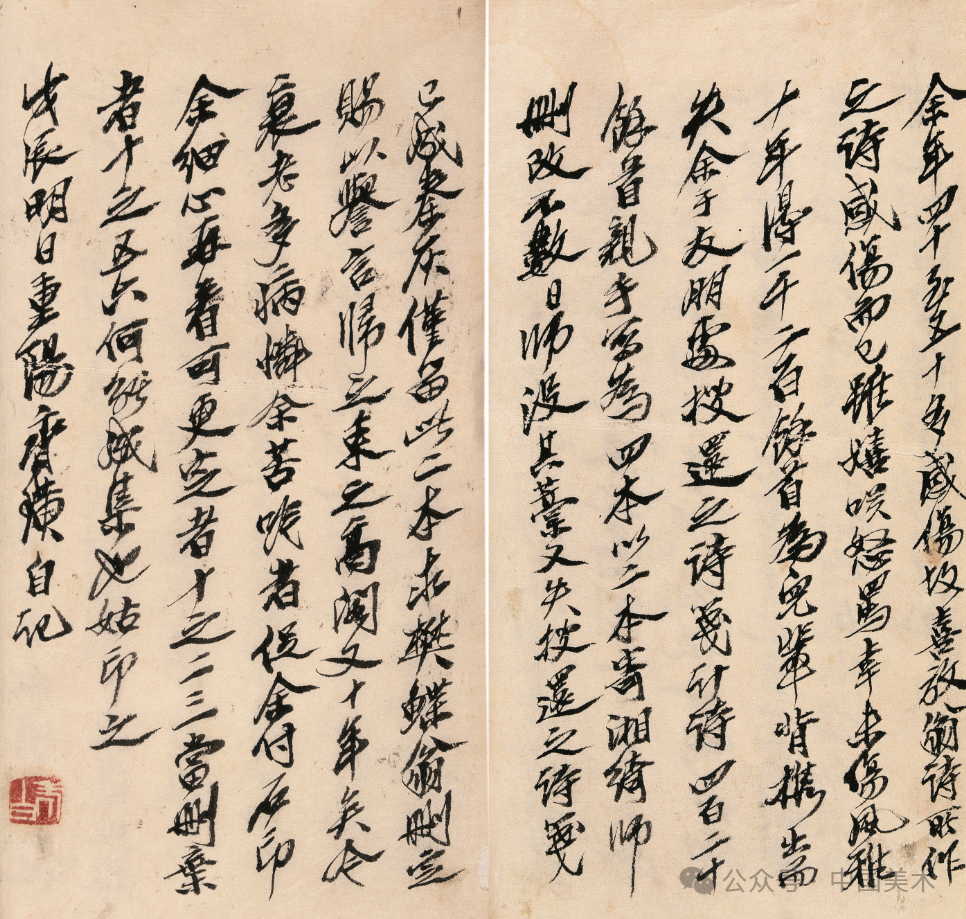 余年四十至五十多感傷故喜放翁詩所作
之詩感傷而已雖嬉唉怒罵幸未傷風雅
十年得一千二百餘首為兒輩背攜出而
失余于友朋處搜還之詩箋計詩四百二十
餘首親手寫為四本以二本寄湘綺師
刪改不數日師沒其稾又失搜還之詩箋
已成劫灰僅留此二本求樊蝶翁刪定
賜以譽言歸之束之高閣又十年矣今
衰老多病憐余苦唉者促余付石印
余細心再看可更定者十之二三當刪棄
者十之五六何能成集也姑印之
戊辰明日重陽齊璜自記
公众号 中国美术